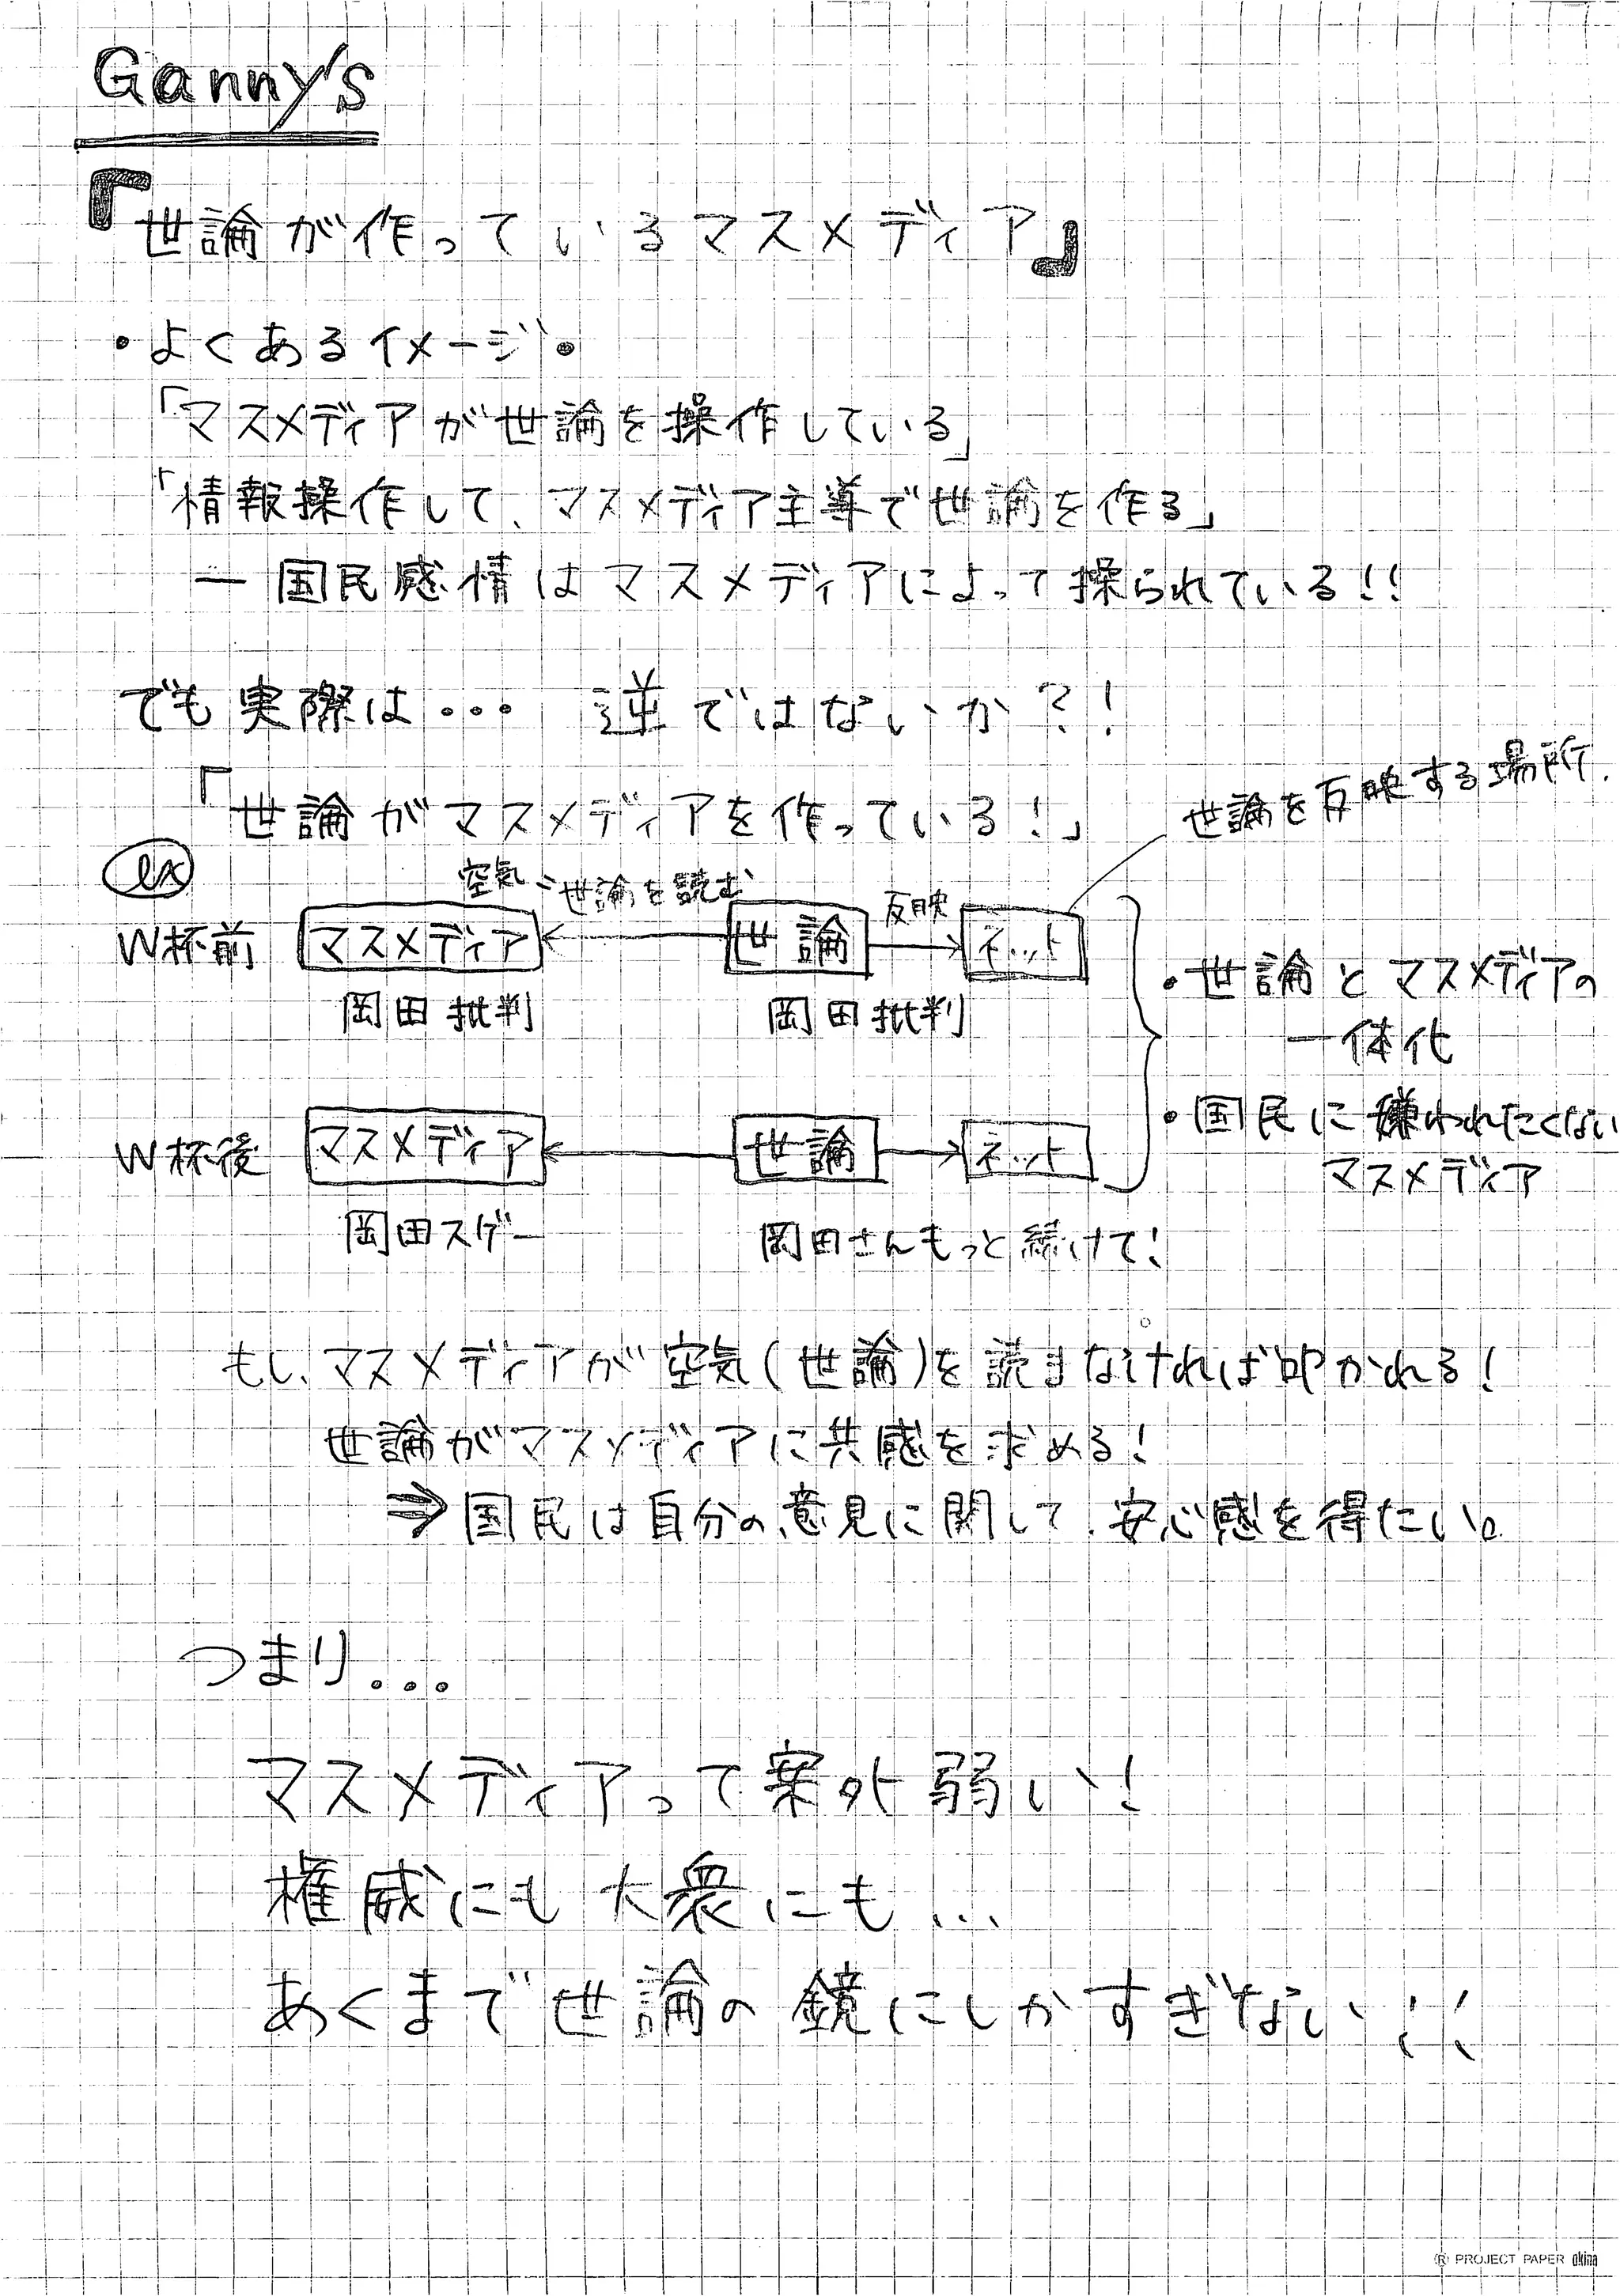 Ganny's
『世論が作っているマスメディア』
・よくあるイメージ・
「マスメディアが世論を操作している」
「情報操作して、マスメディア主導で世論を作る」
ー国民感情はマスメディアによって操られている!!
でも実際は… 逆ではないか?!
「世論がマスメディアを作っている!」
世論を反映する場所.
ex
空気=世論を読む
反映
W杯前 マスメディア 世論 ネット
岡田批判 岡田批判
・世論とマスメディアの
一体化
・国民に嫌われたくない
マスメディア
W杯後 マスメディア 世論 ネット
岡田スゲー 岡田さんもっと続けて!
もし、マスメディアが空気(世論)を読まなければ叩かれる!
世論がマスメディアに共感を求める!
⇒国民は自分の意見に関して、安心感を得たい。
つまり...
マスメディアって案外弱い!
権威にも大衆にも...
あくまで世論の鏡にしかすぎない!!
Ⓡ PROJECT PAPER okina